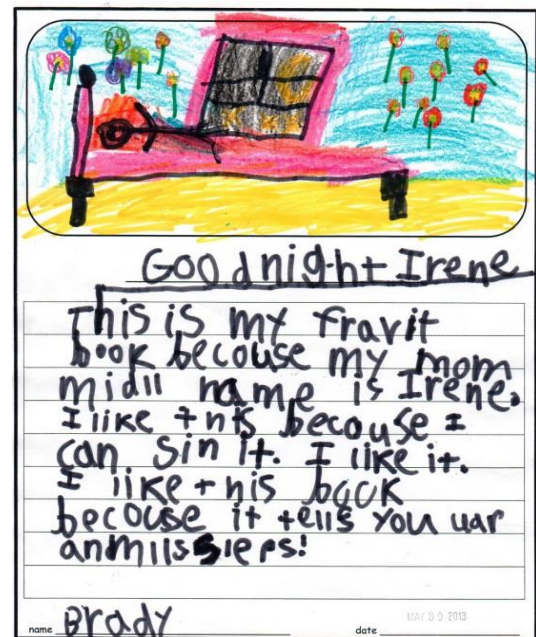 Goodnight Irene
This is my fravit
book becouse my mom
midll name is Irene.
I like this becouse I
can sin it. I like it.
I like this book
becouse it tells you uar
anmilssleps!
name Brady date MAY 30 2013